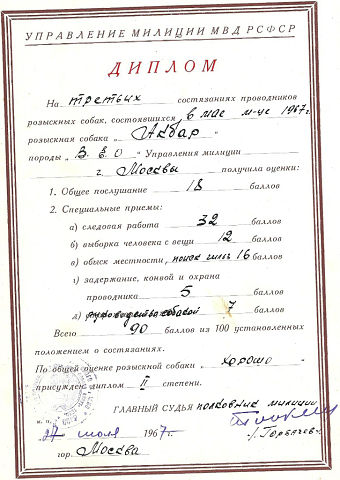 УПРАВЛЕНИЕ МИЛИЦИИ МВД РСФСР
ДИПЛОМ
На третьих состязаниях проводников
розыскных собак, состоявшихся в мае м-це 1967 г.
розыскная собака „ Акбар "
породы „ В.Е.О " Управления милиции
г. Москвы получила оценки:
1. Общее послушание 18 баллов
2. Специальные приемы:
а) следовая работа 32 баллов
б) выборка человека с вещи 12 баллов
в) обыск местности, 16 баллов
г) задержание, конвой и охрана
проводника 5 баллов
д) руководство собакой 7 баллов
Всего 90 баллов из 100 установленных
положением о состязаниях.
По общей оценке розыскной собаки „ хорошо "
присужден диплом II степени.
ГЛАВНЫЙ СУДЬЯ полковник милиции
/Горбачев/
м. п. 27 июля 1967 г.
гор. Москва